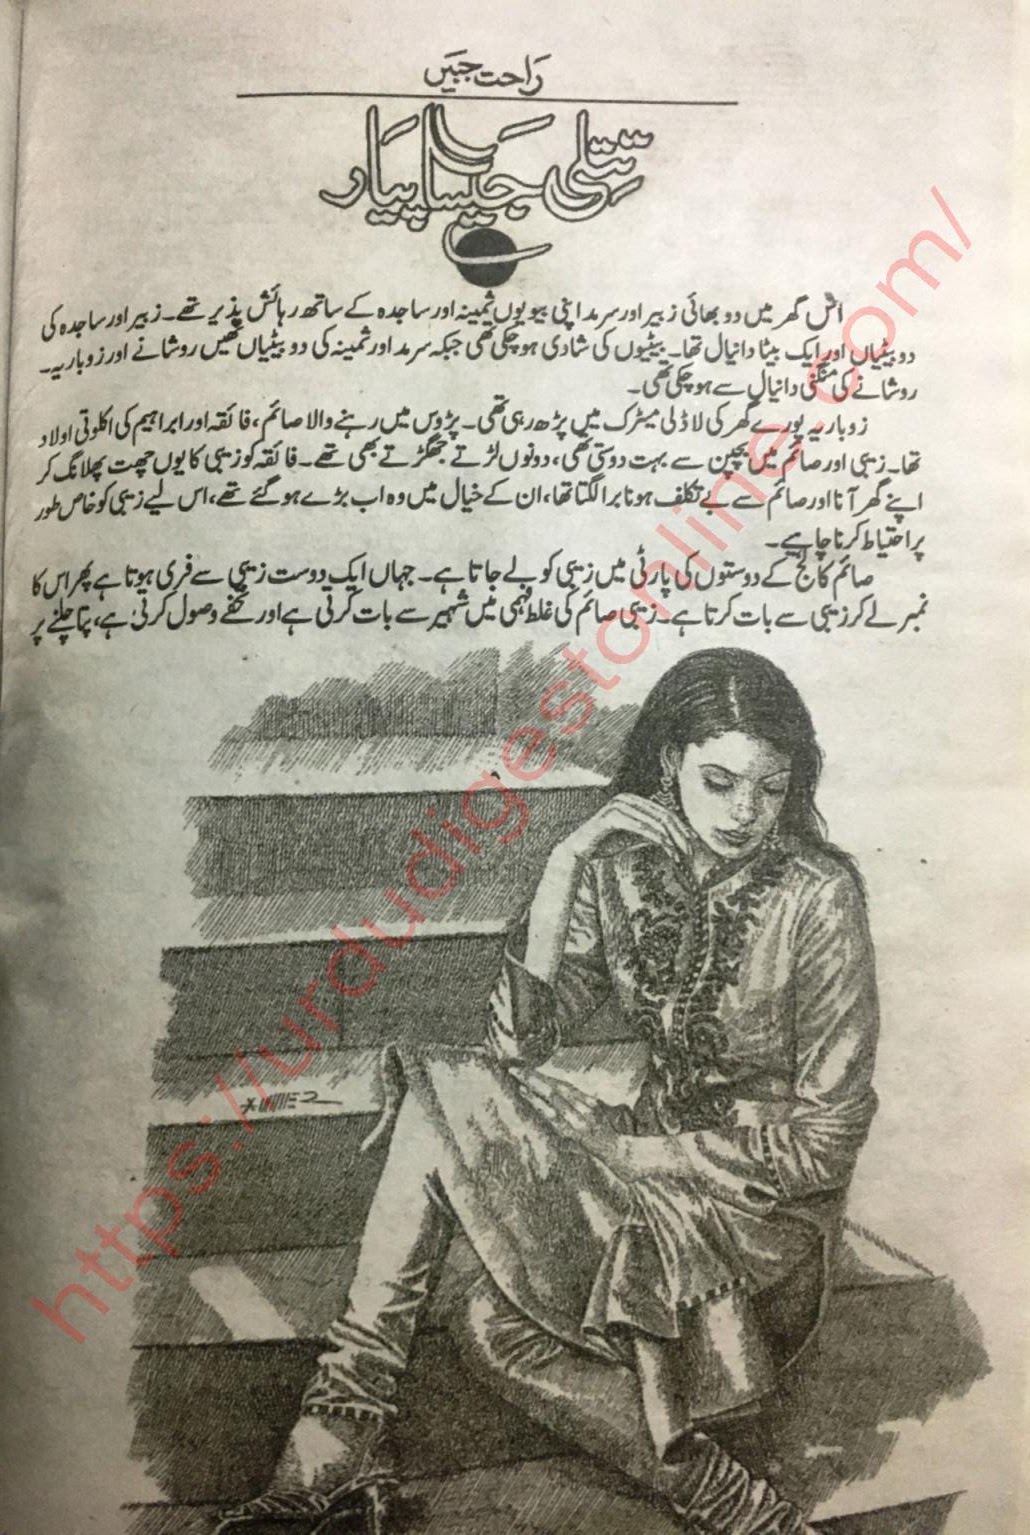 راحت جبیں
تتلی جیسا پیار
اس گھر میں دو بھائی زبیر اور سرمد اپنی بیویوں ثمینہ اور ساجدہ کے ساتھ رہائش پذیر تھے۔ زبیر اور ساجدہ کی
دو بیٹیاں اور ایک بیٹا دانیال تھا۔ بیٹیوں کی شادی ہوچکی تھی جبکہ سرمد اور ثمینہ کی دو بیٹیاں تھیں روشانے اور زوباریہ۔
روشانے کی منگنی دانیال سے ہوچکی تھی۔
زوباریہ پورے گھر کی لاڈلی میٹرک میں پڑھ رہی تھی۔ پڑوس میں رہنے والا صائم، فائقہ اور ابراہیم کی اکلوتی اولاد
تھا۔ زیبی اور صائم میں بچپن سے بہت دوستی تھی، دونوں لڑتے جھگڑتے بھی تھے۔ فائقہ کو زیبی کا یوں چھت پھلانگ کر
اپنے گھر آنا اور صائم سے بے تکلف ہونا برا لگتا تھا، ان کے خیال میں وہ اب بڑے ہوگئے تھے، اس لیے زیبی کو خاص طور
پر احتیاط کرنا چاہیے۔
صائم کالج کے دوستوں کی پارٹی میں زیبی کو لے جاتا ہے۔ جہاں ایک دوست زیبی سے فری ہوتا ہے پھر اس کا
نمبر لے کر زیبی سے بات کرتا ہے۔ زیبی صائم کی غلط فہمی میں شہیر سے بات کرتی ہے اور تحفے وصول کرتی ہے، پتا چلنے پر
https://urdudigestonline.com/